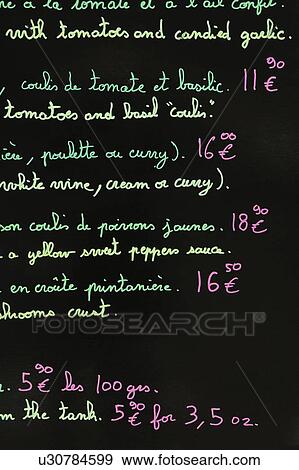 à la tomate et à l'ail confit.
with tomatoes and candied garlic.
, coulis de tomate et basilic. 11€90
tomatoes and basil "coulis."
ière, poulette ou curry). 16€00
white wine, cream or curry).
son coulis de poivrons jaunes. 18€90
a yellow sweet peppers sauce.
en croûte printanière. 16€50
shrooms crust.
. 5€90 les 100 grs.
m the tank. 5€90 for 3,5 oz.
FOTOSEARCH
u30784599 www.fotosearch.com